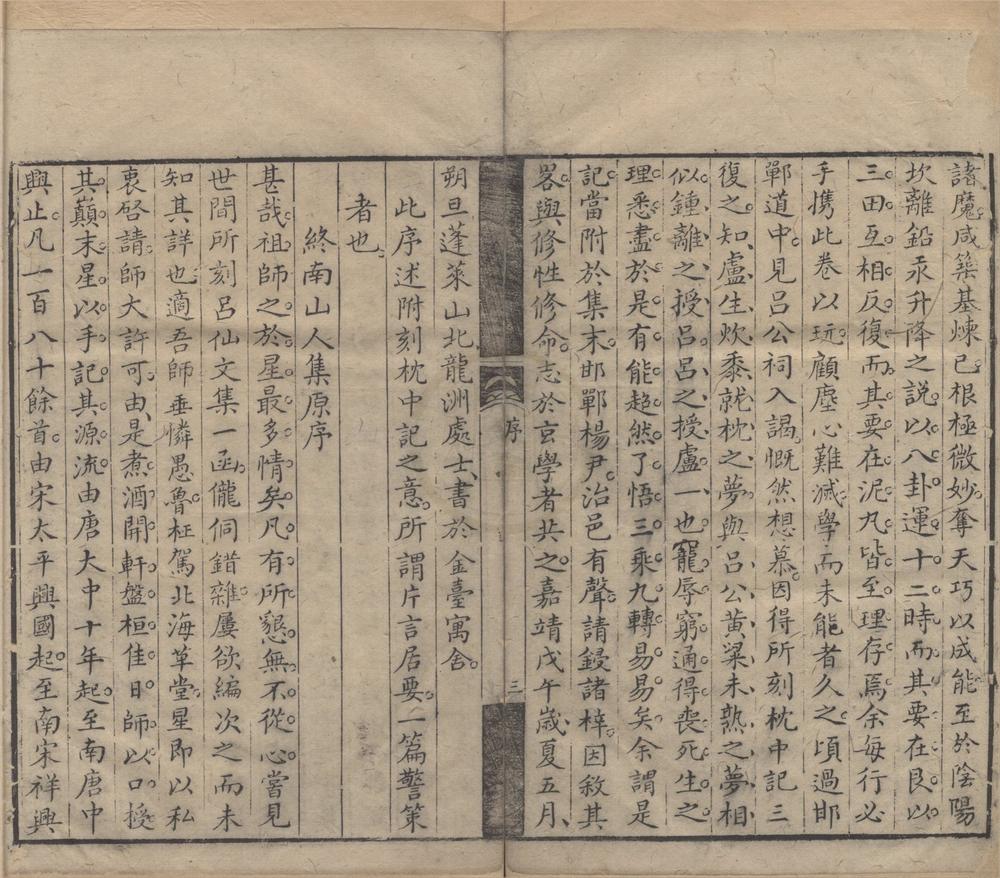 諸魔咸築基煉已根極微妙奪天巧以成能至於陰陽
坎離鉛汞升降之說以八卦運十二時而其要在艮以
三田互相反復而其要在泥丸皆至理存焉余每行必
手携此卷以玩顧塵心難滅學而未能者久之頃過邯
鄲道中見呂公祠入謁慨然想慕因得所刻枕中記三
復之知盧生炊黍就枕之夢與呂公黃粱未熟之夢相
似鍾離之授呂呂之授盧一也寵辱窮通得喪死生之
理悉盡於是有能超然了悟三乘九轉易易矣余謂是
記當附於集末邯鄲楊尹治邑有聲請鋟諸梓因敘其
畧與修性修命志於玄學者共之嘉靖戊午歲夏五月
序
三
朔旦蓬萊山北龍洲處士書於金臺寓舍
此序述附刻枕中記之意所謂片言居要一篇警策
者也
終南山人集原序
甚哉祖師之於星最多情矣凡有所懇無不從心嘗見
世間所刻呂仙文集一函儱侗錯雜屢欲編次之而未
知其詳也適吾師垂憐愚魯枉駕北海草堂星即以私
衷啓請師大許可由是煮酒開軒盤桓佳日師以口授
其巔末星以手記其源流由唐大中十年起至南唐中
興止凡一百八十餘首由宋太平興國起至南宋祥興